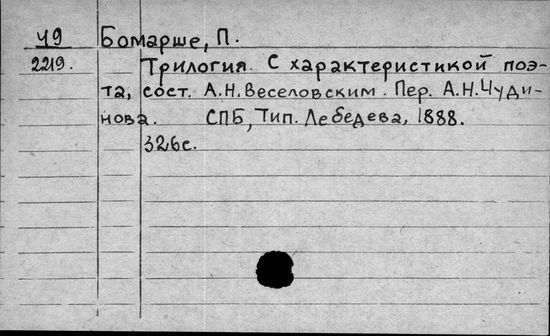 49 Бомарше, П.
2219. Трилогия. С характеристикой поэ-
та, сост. А.Н. Веселовским. Пер. А.Н. Чуди-
нова. СПБ, Тип. Лебедева, 1888.
326с.